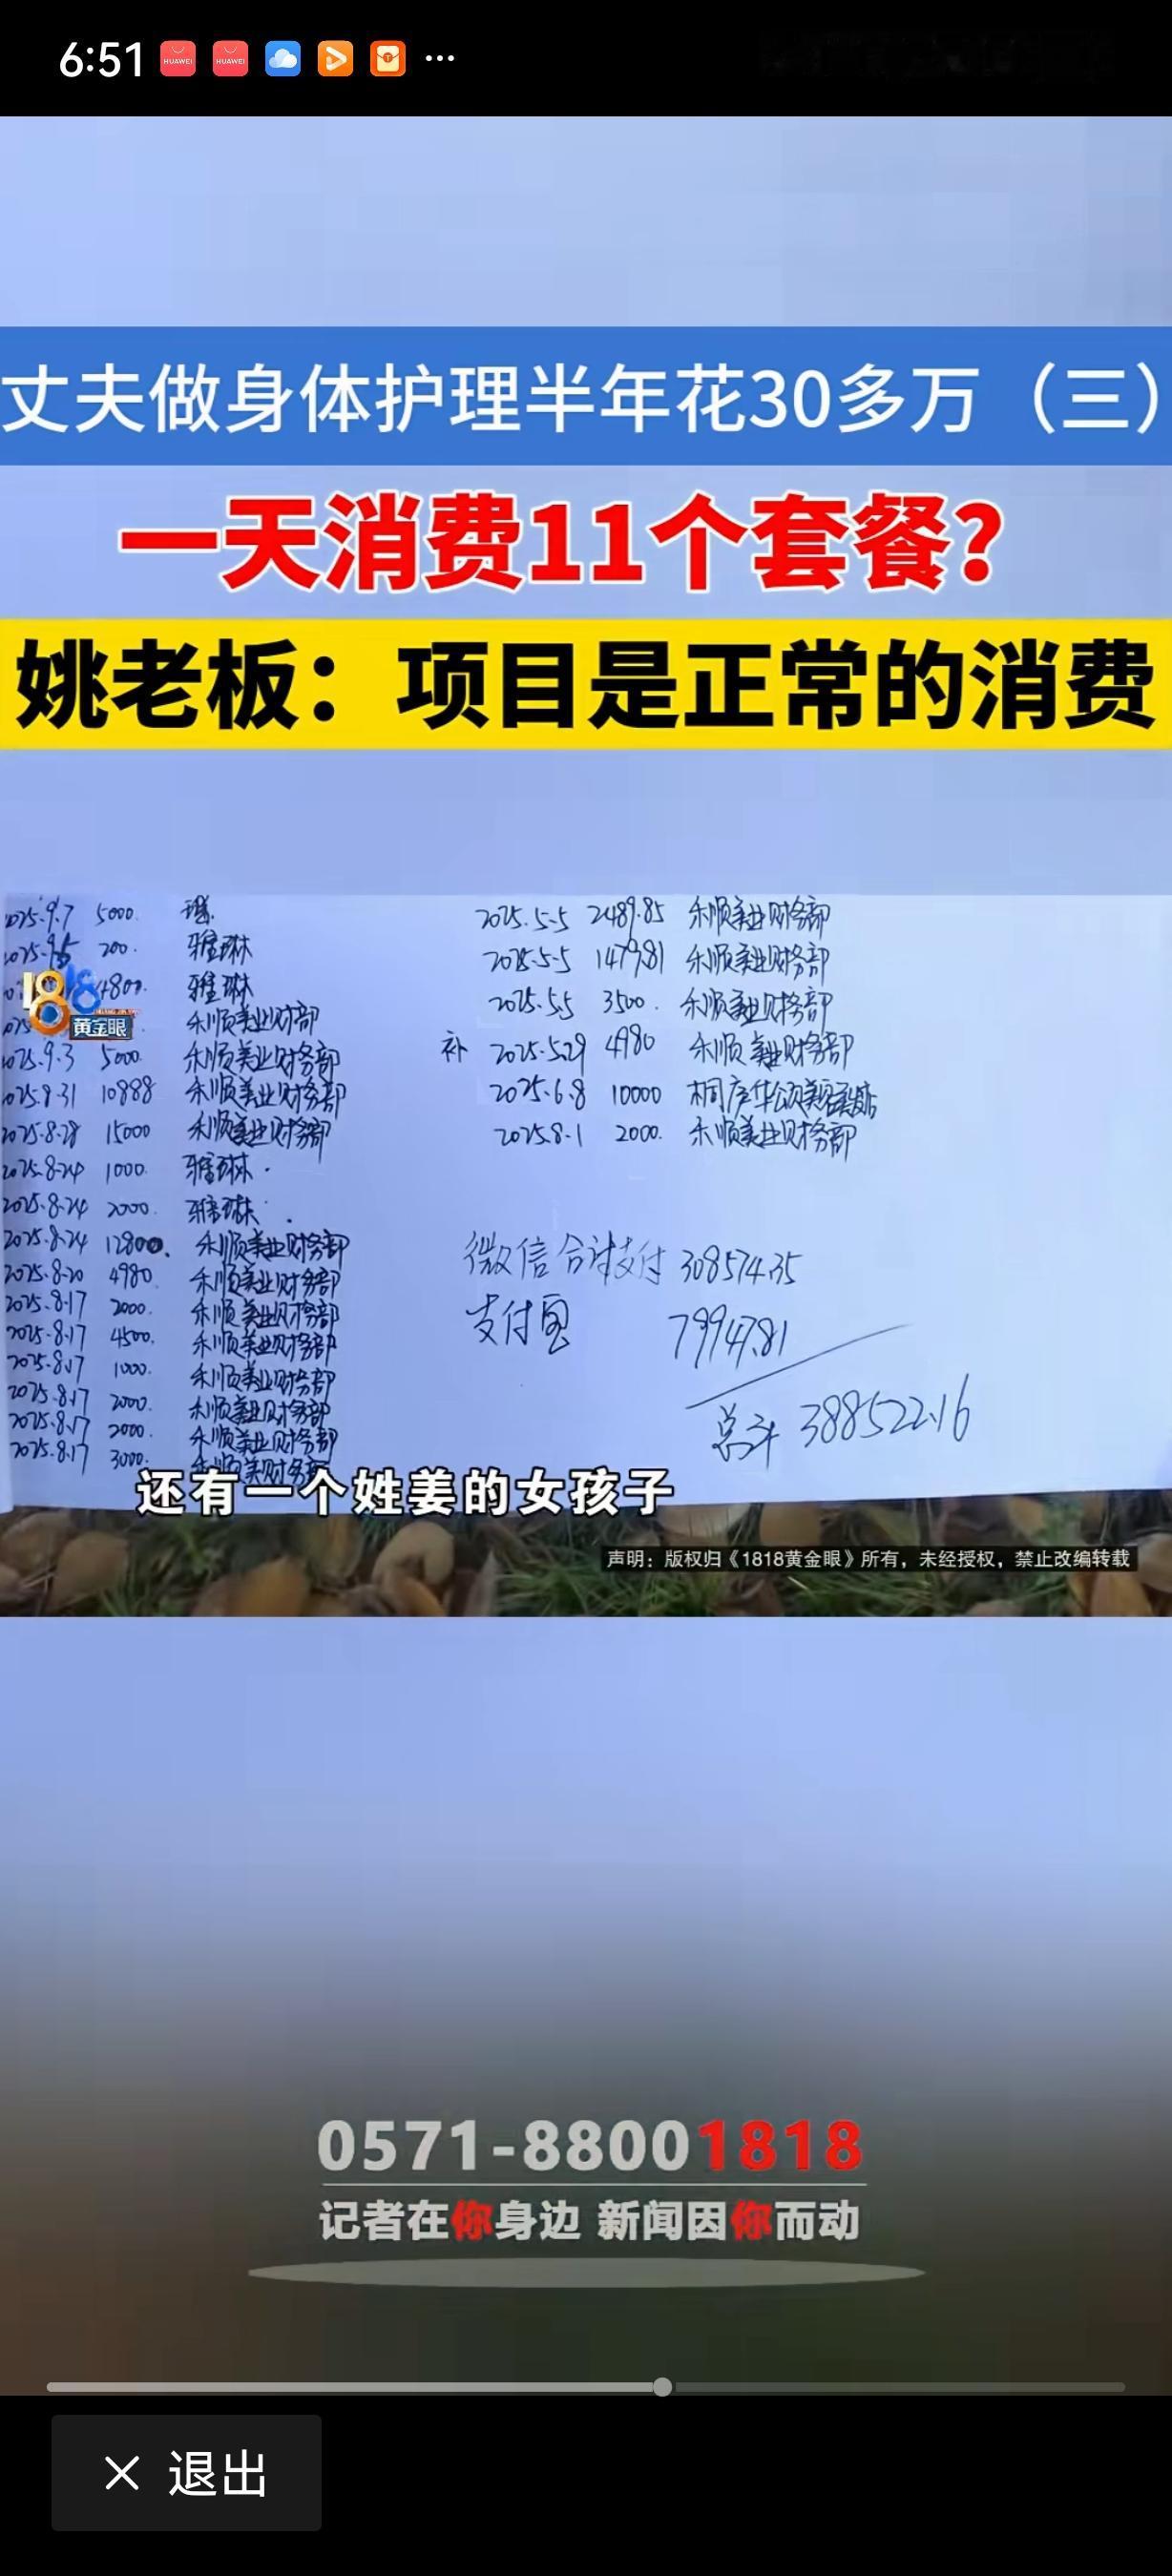 6:51
HUAWEI HUAWEI
丈夫做身体护理半年花30多万（三）
一天消费11个套餐？
姚老板：项目是正常的消费
2025.9.7 5000.
200. 雅琳
4800. 雅琳
禾顺美业财务部
2025.9.3 5000. 禾顺美业财务部
2025.8.31 10888 禾顺美业财务部
2025.8.28 15000 禾顺美业财务部
2025.8.24 1000. 雅琳.
2025.8.24 2000. 雅琳.
2025.8.24 12800. 禾顺美业财务部
2025.8.20 4980. 禾顺美业财务部
2025.8.17 2000. 禾顺美业财务部
2025.8.17 4500. 禾顺美业财务部
2025.8.17 1000. 禾顺美业财务部
2025.8.17 2000. 禾顺美业财务部
2025.8.17 2000. 禾顺美业财务部
2025.8.17 3000.
2025.5.5 2489.85 禾顺美业财务部
2025.5.5 1479.81 禾顺美业财务部
2025.5.5 3500. 禾顺美业财务部
补 2025.5.29 4980 禾顺美业财务部
2025.6.8 10000 桐庐华颂美容
2025.8.1 2000. 禾顺美业财务部
微信合计支付 308574.35
支付宝 79947.81
总计 388522.16
1818
黄金眼
还有一个姓姜的女孩子
声明：版权归《1818黄金眼》所有，未经授权，禁止改编转载
0571-88001818
记者在你身边 新闻因你而动
× 退出